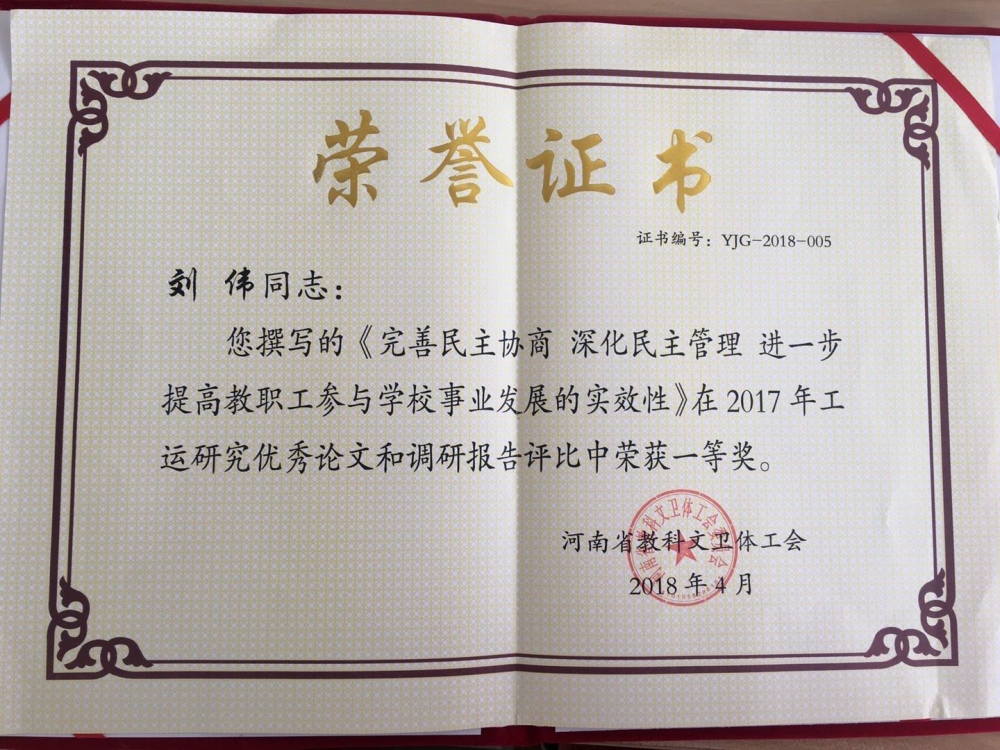 荣誉证书
证书编号：YJG-2018-005
刘 伟同志：
您撰写的《完善民主协商 深化民主管理 进一步
提高教职工参与学校事业发展的实效性》在 2017 年工
运研究优秀论文和调研报告评比中荣获一等奖。
河南省教科文卫体工会
2018 年 4 月
河南省教科文卫体工会委员会